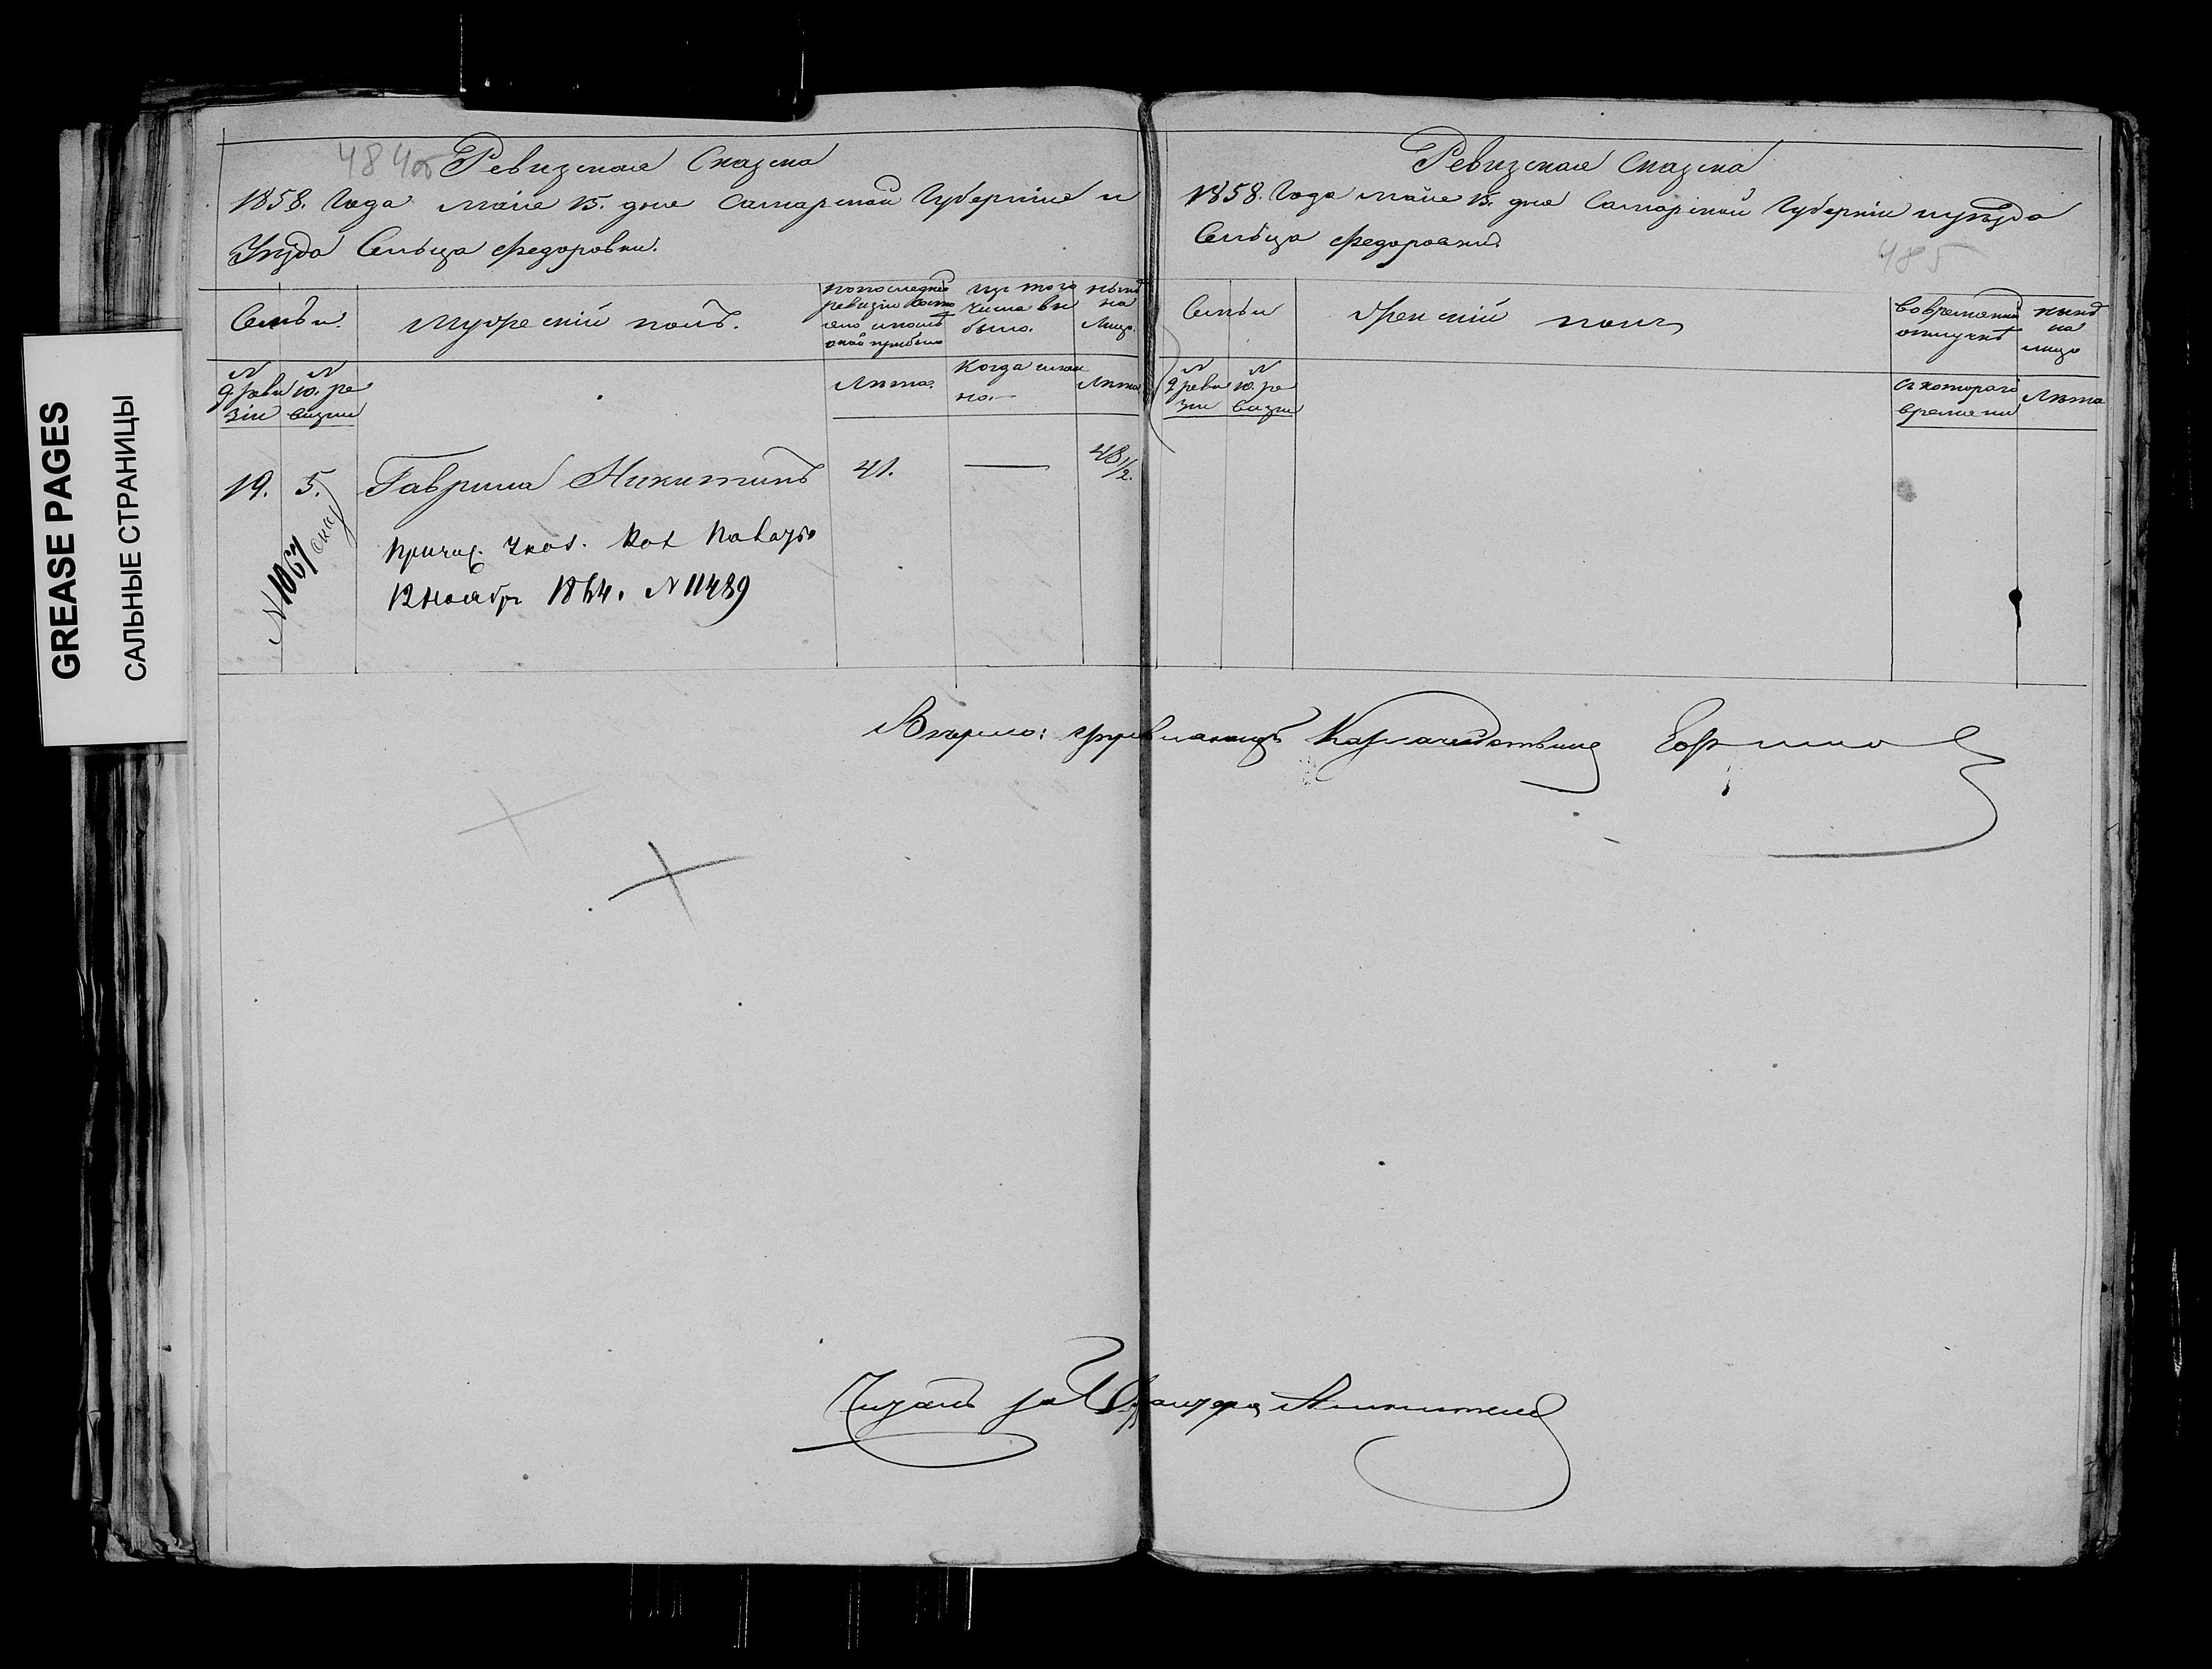 GREASE PAGES
САЛЬНЫЕ СТРАНИЦЫ
484об
Ревизская Сказка
1858. Года маия 15. дня Самарской Губернии и
Уезда Сельца Федоровки.
Семьи.
Мужеский полъ.
по последней ревизіи состояло и после оной прибыло
изъ того числа выбыло.
ныне на лицо.
№ 9 ревизіи
№ 10. ревизіи
Лета.
Когда именно.
Лета
19. 5. Гаврила Никитинъ 41. — 48 1/2.
№ 1067
Причис. Указ. Каз Палаты
12 Ноября 1864. № 11489
Ревизская Сказка
1858. Года маия 15. дня Самарской Губерніи и уезда
Сельца Федоровки.
485
Семьи
Женскій полъ
во временной отлучке
ныне на лицо
№ 9 ревизіи
№ 10. ревизіи
съ котораго времени
Лета
Верно:
Читалъ за